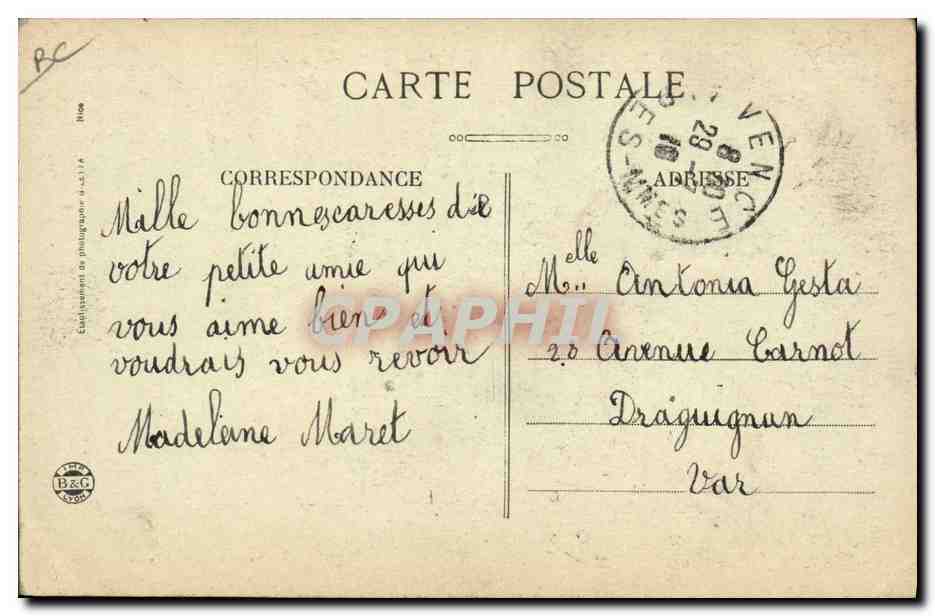 BC
CARTE POSTALE
CORRESPONDANCE
ADRESSE
VENCE
8
29
10
ES-MMES
Mille bonnes caresses de
votre petite amie qui
vous aime bien et
voudrais vous revoir
Madeleine Maret
Melle Antonia Gesta
20 Avenue Carnot
Draguignan
Var
CPAPHIL
Etablissement de photographie Nice
IMP
B&G
LYON